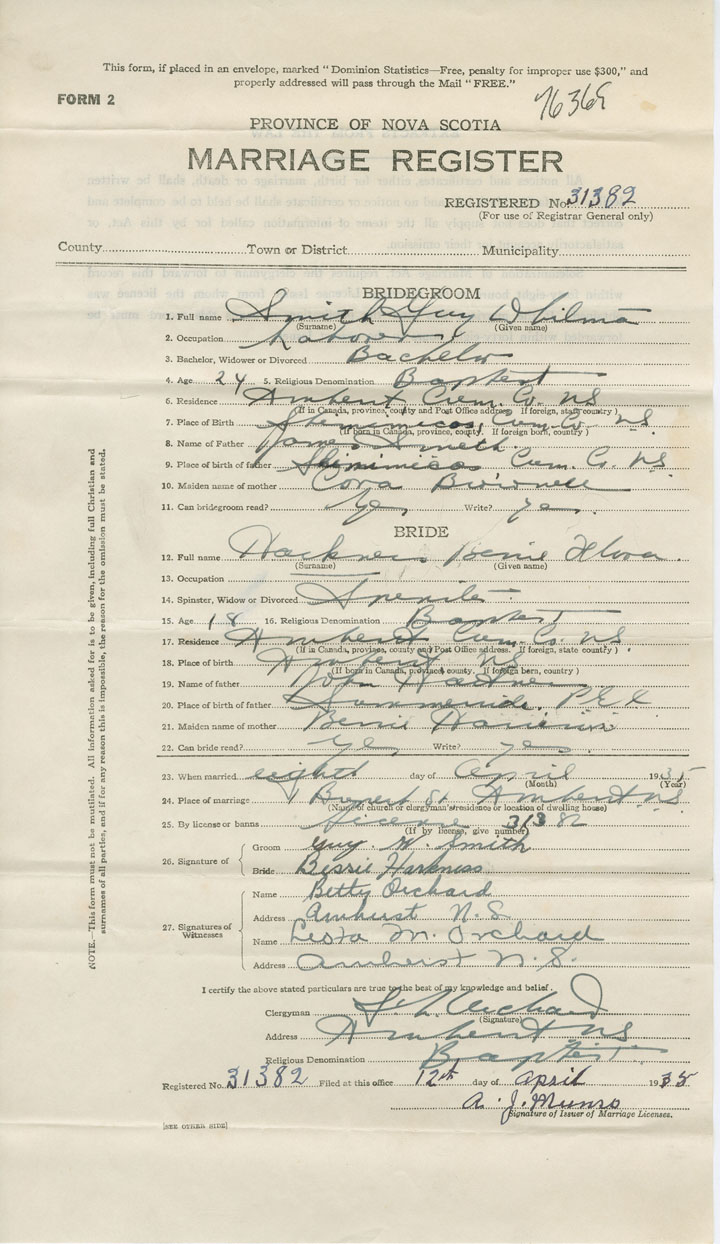 This form, if placed in an envelope, marked "Dominion Statistics—Free, penalty for improper use $300," and
properly addressed will pass through the Mail "FREE."
FORM 2
76369
PROVINCE OF NOVA SCOTIA
MARRIAGE REGISTER
REGISTERED No. 31382
(For use of Registrar General only)
County Town or District Municipality
BRIDEGROOM
1. Full name Smith Guy
(Surname) (Given name)
2. Occupation Laborer
3. Bachelor, Widower or Divorced Bachelor
4. Age 24 5. Religious Denomination Baptist
6. Residence Amherst Cum. Co. NS
(If in Canada, province, county and Post Office address. If foreign, state country)
7. Place of Birth Shinimicas, Cum. Co. NS.
(If born in Canada, province, county. If foreign born, country)
8. Name of Father James Smith.
9. Place of birth of father Shinimicas Cum. Co. NS
10. Maiden name of mother Cora Brownell
11. Can bridegroom read? Yes Write? Yes.
BRIDE
12. Full name
(Surname) (Given name)
13. Occupation
14. Spinster, Widow or Divorced Spinster
15. Age 18 16. Religious Denomination Baptist
17. Residence Amherst Cum. Co. NS
(If in Canada, province, county and Post Office address. If foreign, state country)
18. Place of birth Amherst NS
(If born in Canada, province, county. If foreign born, country)
19. Name of father John
20. Place of birth of father Summerside. P E I
21. Maiden name of mother
22. Can bride read? Yes Write? Yes.
23. When married eight day of April 1935
(Month) (Year)
24. Place of marriage St Amherst NS
(Name of church or clergyman's residence or location of dwelling house)
25. By license or banns license 31382
(If by license, give number)
26. Signature of
Groom Guy. W. Smith
Bride Bessie Harkness
27. Signatures of Witnesses
Name Betty Orchard
Address Amhurst N.S
Name Leota M. Orchard
Address Amherst N.S.
I certify the above stated particulars are true to the best of my knowledge and belief.
Clergyman Orchard
(Signature)
Address Amherst NS
Religious Denomination Baptist
Registered No. 31382 Filed at this office 12th day of April 1935
A. J. Munro
Signature of Issuer of Marriage Licenses.
[SEE OTHER SIDE]
NOTE.—This form must not be mutilated. All information asked for is to be given, including full Christian and
surnames of all parties, and if for any reason this is impossible, the reason for the omission must be stated.